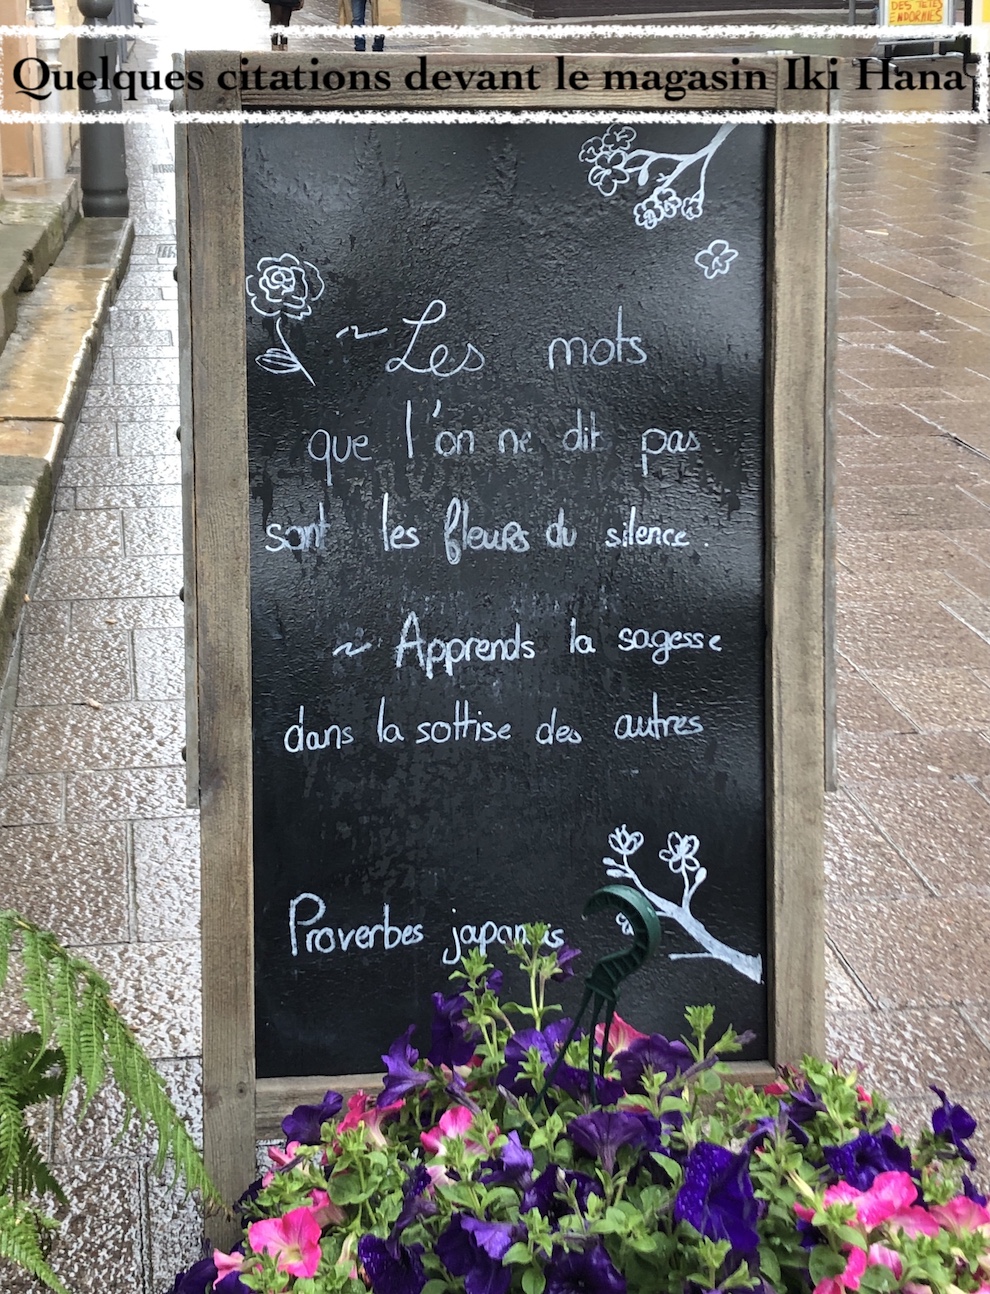 DES TETES
ENDORMIES
Quelques citations devant le magasin Iki Hana
~ Les mots
que l'on ne dit pas
sont les fleurs du silence.
~ Apprends la sagesse
dans la sottise des autres
Proverbes japonais